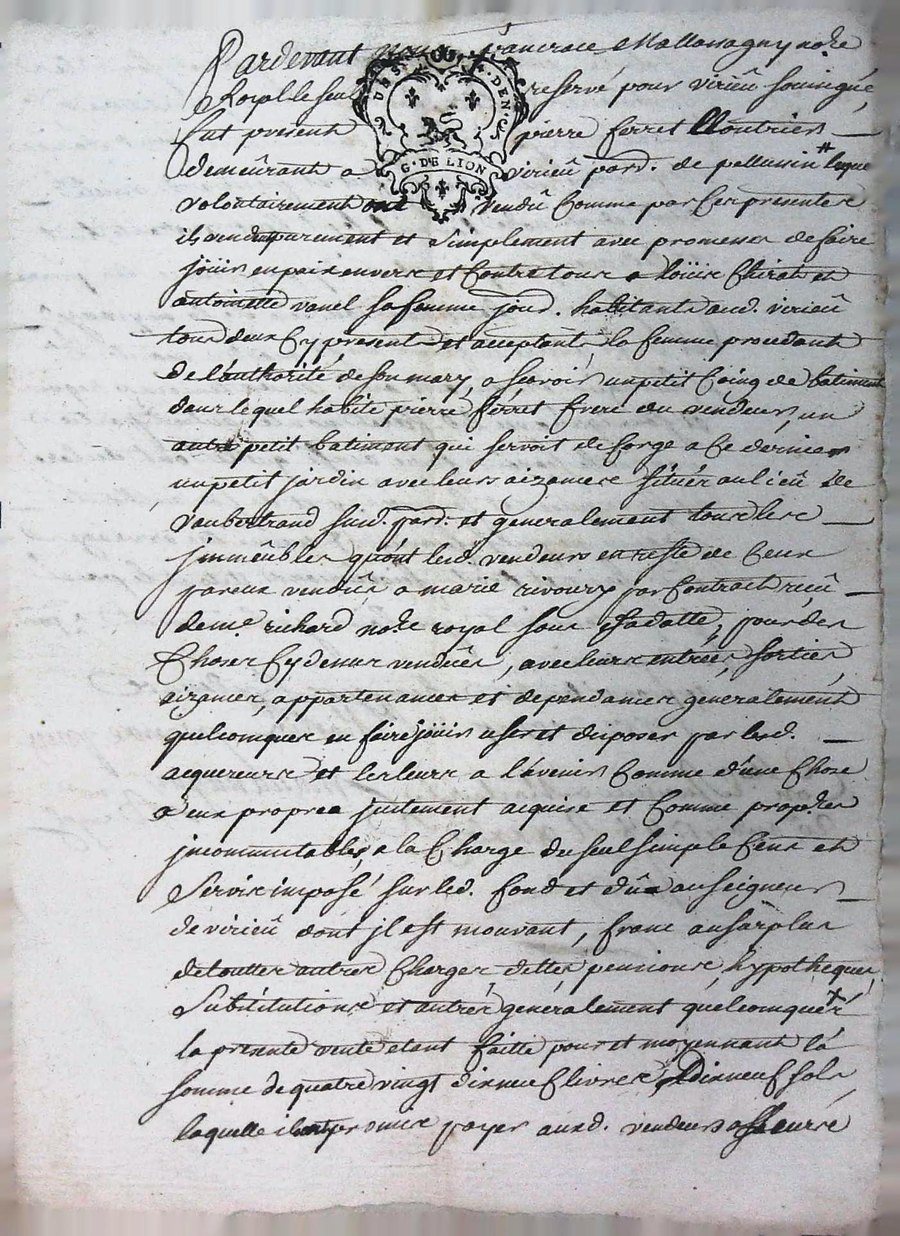 Pardevant nous francoic Mallassagny no.re
Royal le seul reservé pour virieû soussigné,
fut present pierre ferret Cloutrier
DES DEN.S
G. DE LION
demeûrant a virieû pard. de pellussin # leque
volontairement a vendû Comme par Ces presentes
il vend purement et Simplement avec promesse de faire
joüir en paix envers et Contre tous a loüise Chirat et
antoinette vanel sa femme jourd. habitants aud. virieû
tous deux Cy presents et acceptants, la femme procedante
de l'authorité de son mary, a scavoir un petit Coing de batiment
dans lequel habite pierre ferret frere du vendeur, un
autre petit batiment qui servoit de forge a Ce dernier
un petit jardin avec leurs aizances situés au lieû de
vaubertrand sud. pard. et generalement tous les
jmmeûbles qu'ont led. vendeurs en reste de Ceux
par eux vendûs a marie rivoury par Contract reçû
de me. richard no.re royal sous sa datte, pour des
Choses Cy dessus venduës, avec leurs entrées, sorties
aizances, appartenances et dependances generalement
quelcomques en faire joüir user et disposer par lesd.
acquereurs et les leurs a l'avenir Comme d'une Chose
a eux propre justement acquise et Comme propres
jncommutables, a la Charge du seul simple Cens et
Servis imposé sur led. fond et dû au seigneur
de virieû dont jl est mouvant, franc au sûrplus
de touttes autres Charges, dettes, pensions, hypotheques,
Substitutions et autres généralement quelcomques +
la presente vente etant faitte pour et moyennant la
somme de quatre vingt dix neuf livres, dix neuf sols
laquelle ils ont promis payer aud. vendeur